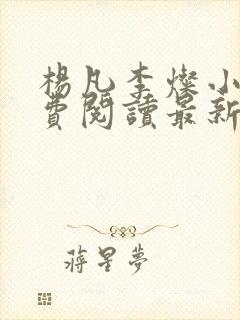 楊凡李燦小
費閱讀最新
蔣星夢